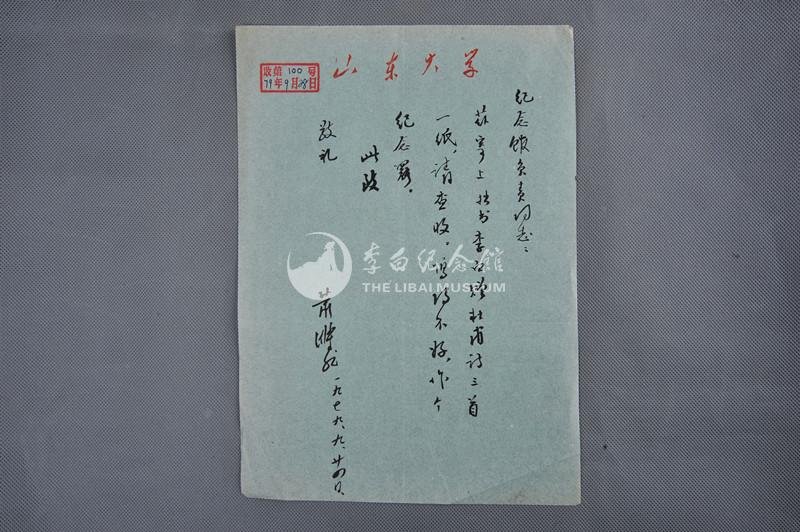 山东大学
收第100号
79年9月28日
纪念馆负责同志：
兹寄上拙书李白赠杜甫诗三首
一纸，请查收。写得不好，作个
纪念罢。
此致
敬礼
萧
一九七九、九、廿四日、
李白纪念馆
THE LIBAI MUSEUM